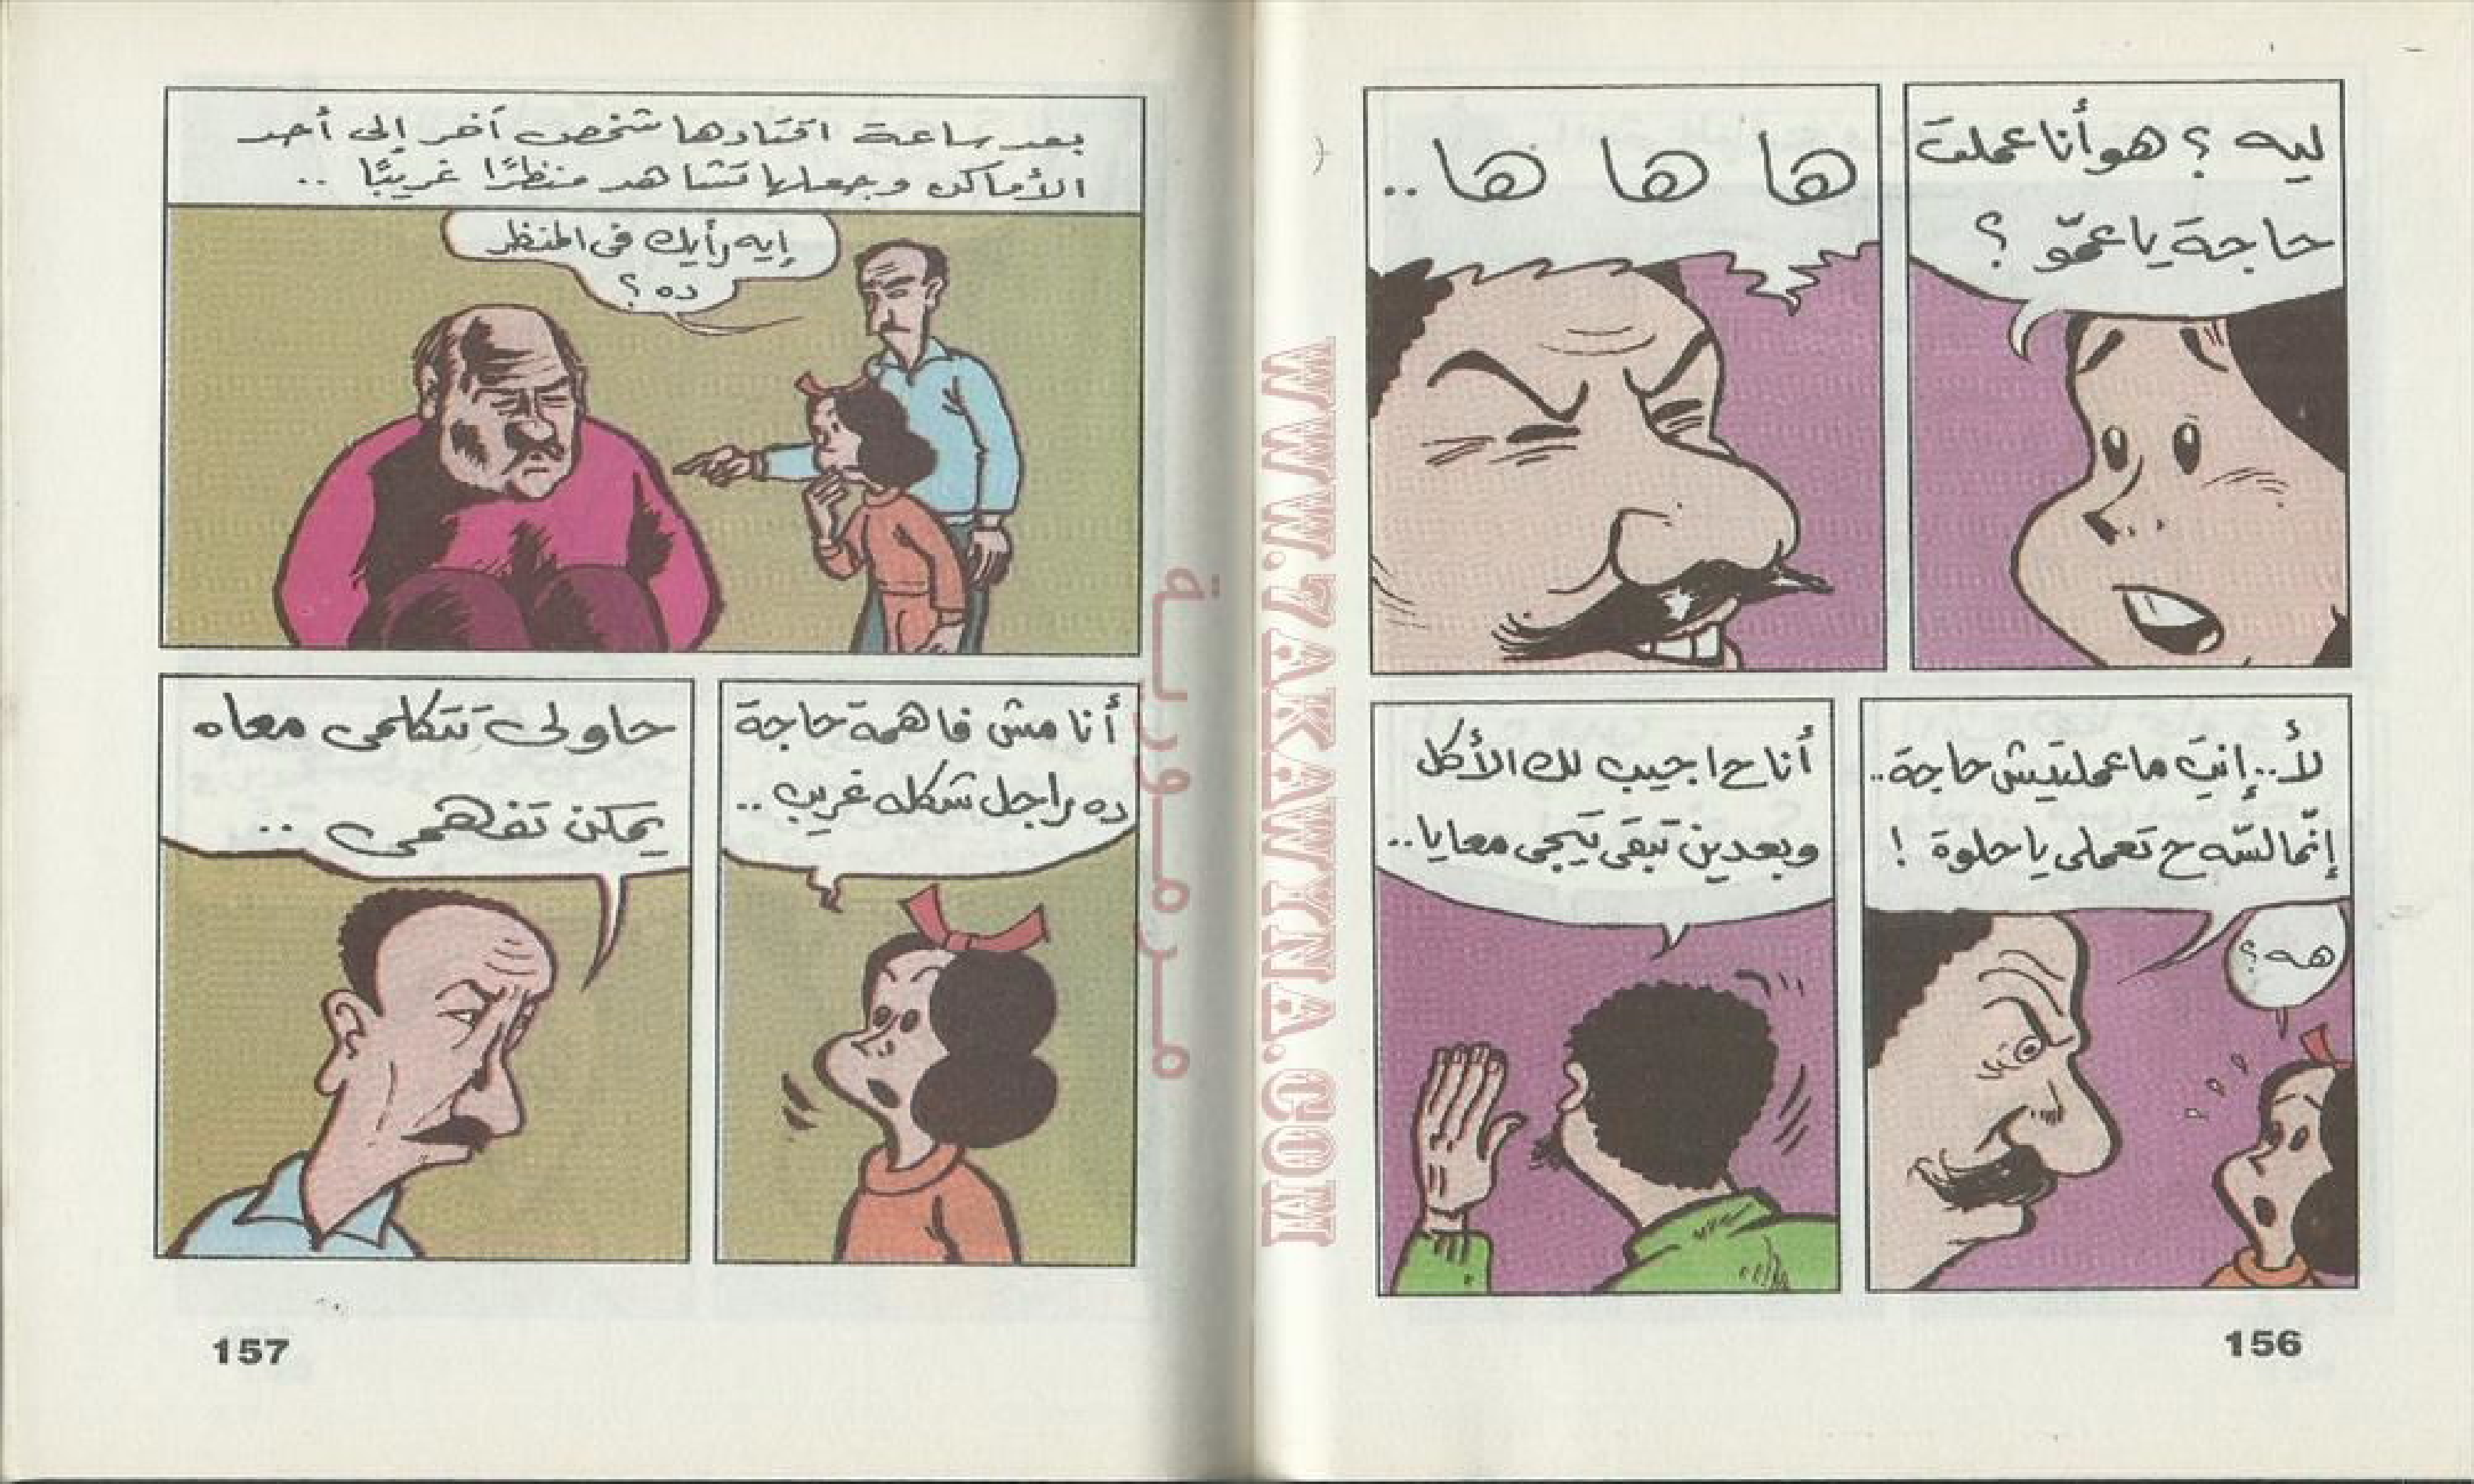 ليه ؟ هو أنا عملت
حاجة يا عمّو ؟
ها ها ها ..
هه ؟
لأ .. إنتِ ما عملتيش حاجة ..
إنّما لسّه ح تعملى يا حلوة !
أنا ح اجيب لك الأكل
وبعدين تبقى تيجى معايا ..
156
بعد ساعة اقتادها شخص آخر إلى أحد
الأماكن وجعلها تشاهد منظرًا غريبًا ..
إيه رأيك فى المنظر
ده ؟
أنا مش فاهمة حاجة
ده راجل شكله غريب ..
حاولى تتكلمى معاه
يمكن تفهمى ..
157
WWW.7AKAWINA.COM
مرمورية